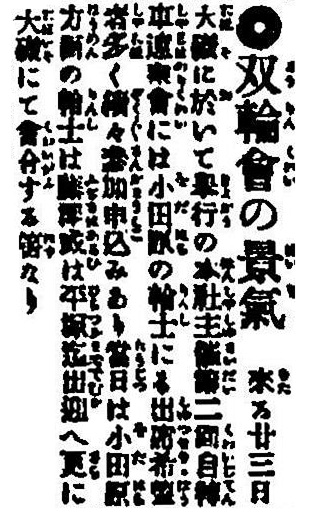 ◉双輪會の景氣 來る廿三日
大磯に於いて擧行の本社主催第二回自轉
車遠乘會には小田原の輪士にも出席希望
者多く續々參加申込みあり當日は小田原
方面の輪士は藤澤或は平塚迄出迎へ更に
大磯にて會合する筈なり